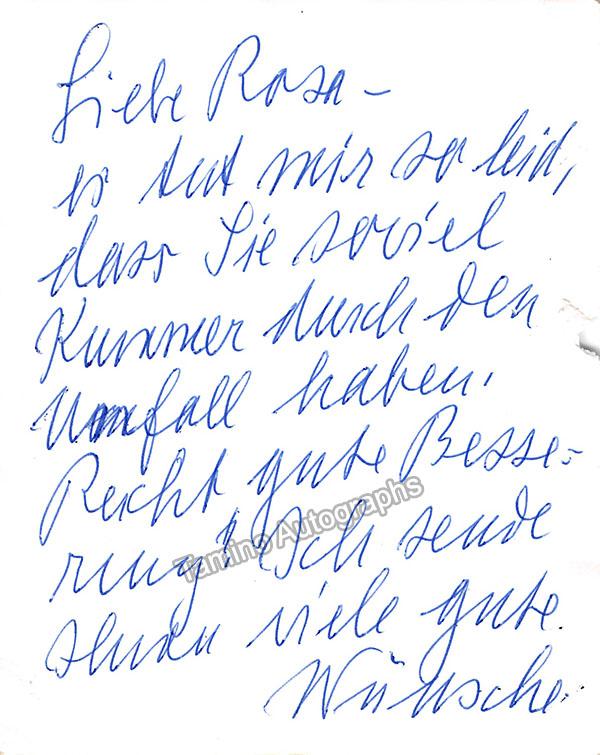 Liebe Rosa –
es tut mir so leid,
dass Sie soviel
Kummer durch den
Unfall haben.
Recht gute Besse-
rung! Ich sende
Ihnen viele gute
Wünsche.
Tamino Autographs